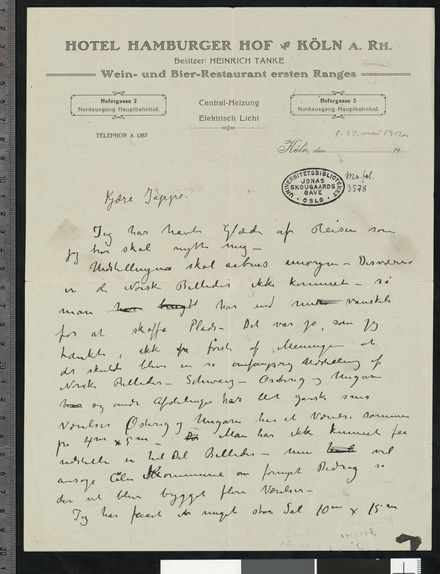 HOTEL HAMBURGER HOF KÖLN A. RH.
Besitzer: HEINRICH TANKE
Wein- und Bier-Restaurant ersten Ranges
Hofergasse 2
Nordausgang Hauptbahnhof.
Central-Heizung
Elektrisch Licht
Hofergasse 2
Nordausgang Hauptbahnhof.
TELEPHON A 1357
Köln, den 22. mai 1912 19
UNIVERSITETSBIBLIOTEKET
JONAS
SKOUGAARDS
GAVE
OSLO
Ms. fol.
3578
Kjære Jappe.
Jeg har havt Glæde af Reisen som
jeg tror skal nytte mig –
Udstillingen skal aabnes imorgen – Desværre
er de Norske Billeder ikke kommet – så
man har med vanskelighed
for at skaffe Plads – Det var jo, som jeg
tænkte, ikke først af Meningen at
det skulde blive en så omfangsrig Udstilling af
Norske Billeder – Schweiz – Østerig og Ungarn
og andre Afdelinger har det ganske små
Værelser Østerig og Ungarn har et Værelse sammen
på 4m x 5m – Man har ikke kunnet få
udstillet en hel Del Billeder – men vil
ansøge Cöln Kommune om fornyet Bidrag så
der vil blive bygget flere Værelser –
Jeg har faaet en meget stor Sal 10m x 15m